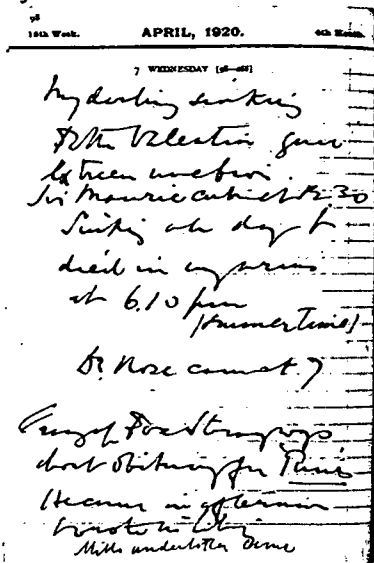 98
15th Week. APRIL, 1920. 4th Month.
7 WEDNESDAY [98-268]
My darling sinking
Father Valentine gave
Extreme unction.
Sir Maurice came at 12.30
Sinking all day &
died in my arms
at 6.10 pm
(Summer Time)
Dr. Rose came at 7
about obituary for Times
He came in afternoon
wrote in
Mills undertaker came